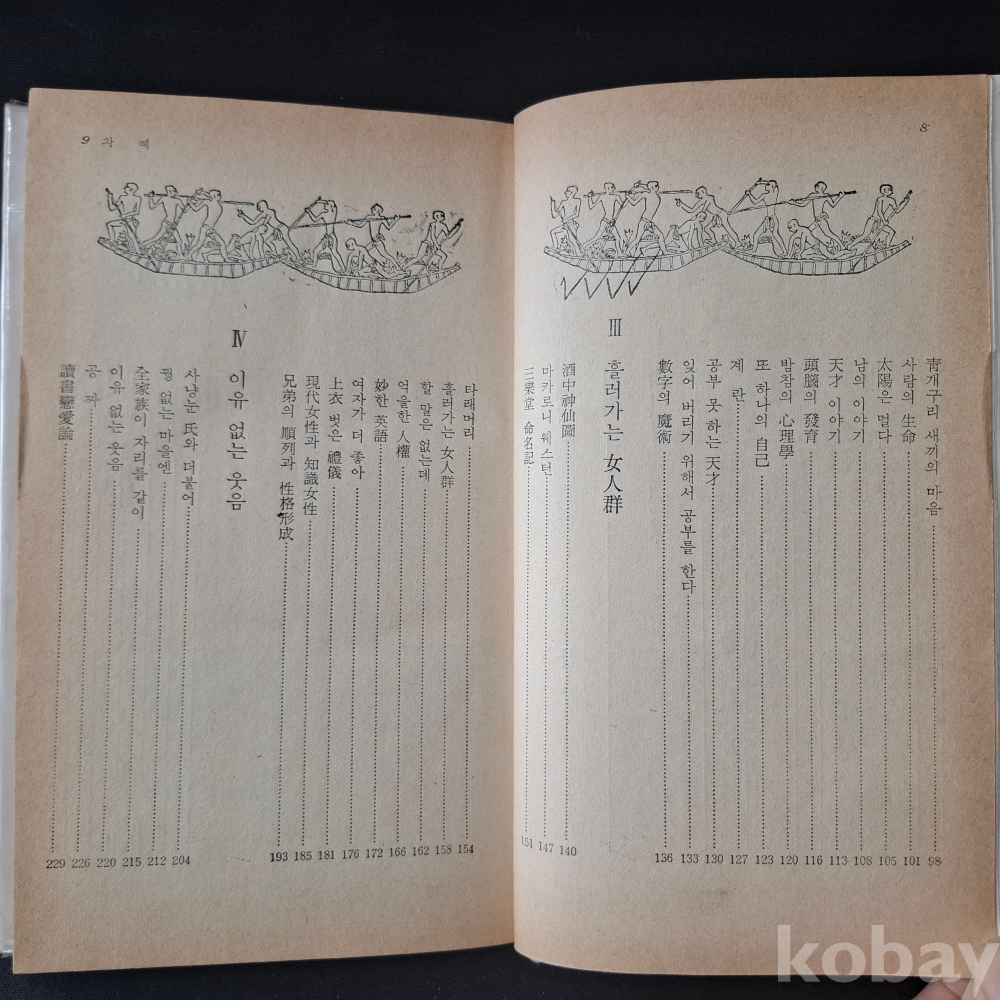 8
靑개구리 새끼의 마음 98
사람의 生命 101
太陽은 멀다 105
남의 이야기 108
天才 이야기 113
頭腦의 發育 116
밤참의 心理學 120
또 하나의 自己 123
계 란 127
공부 못 하는 天才 130
잊어 버리기 위해서 공부를 한다 133
數字의 魔術 136
Ⅲ 흘러가는 女人群
酒中神仙圖 140
마카로니 웨스턴 147
三樂堂 命名記 151
9 차 례
타래머리 154
흘러가는 女人群 158
할 말은 없는데 162
억울한 人權 166
妙한 英語 172
여자가 더 좋아 176
上衣 벗은 禮儀 181
現代女性과 知識女性 185
兄弟의 順列과 性格形成 193
Ⅳ 이유 없는 웃음
사냥눈 氏와 더불어 204
없는 마을엔 212
全家族이 자리를 같이 215
이유 없는 웃음 220
공 짜 226
讀書戀愛論 229
kobay